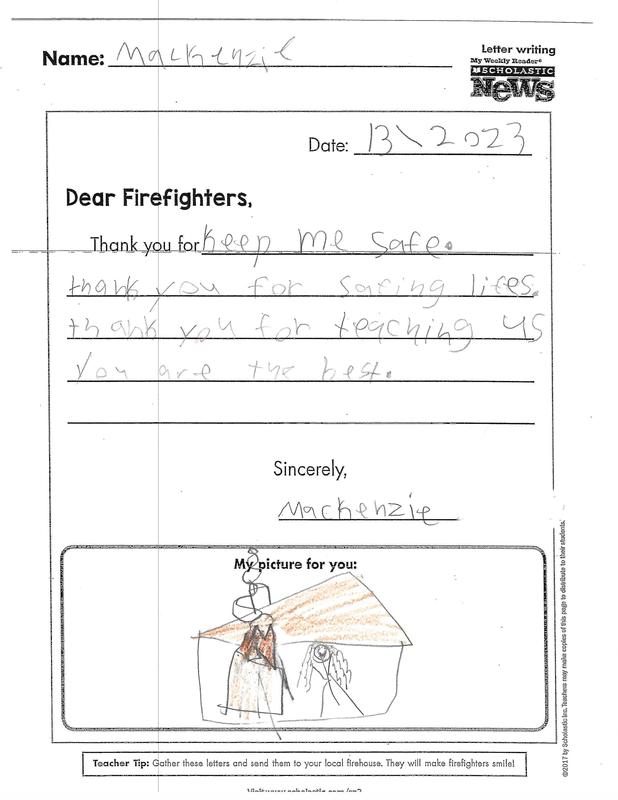 Name: Mackenzie
Letter writing
My Weekly Reader®
SCHOLASTIC
News
Date: 13\2023
Dear Firefighters,
Thank you for keep me safe.
thank you for safing lifes.
thank you for teaching us
you are the best.
Sincerely,
Mackenzie
My picture for you:
Teacher Tip: Gather these letters and send them to your local firehouse. They will make firefighters smile!
©2017 by Scholastic Inc. Teachers may make copies of this page to distribute to their students.